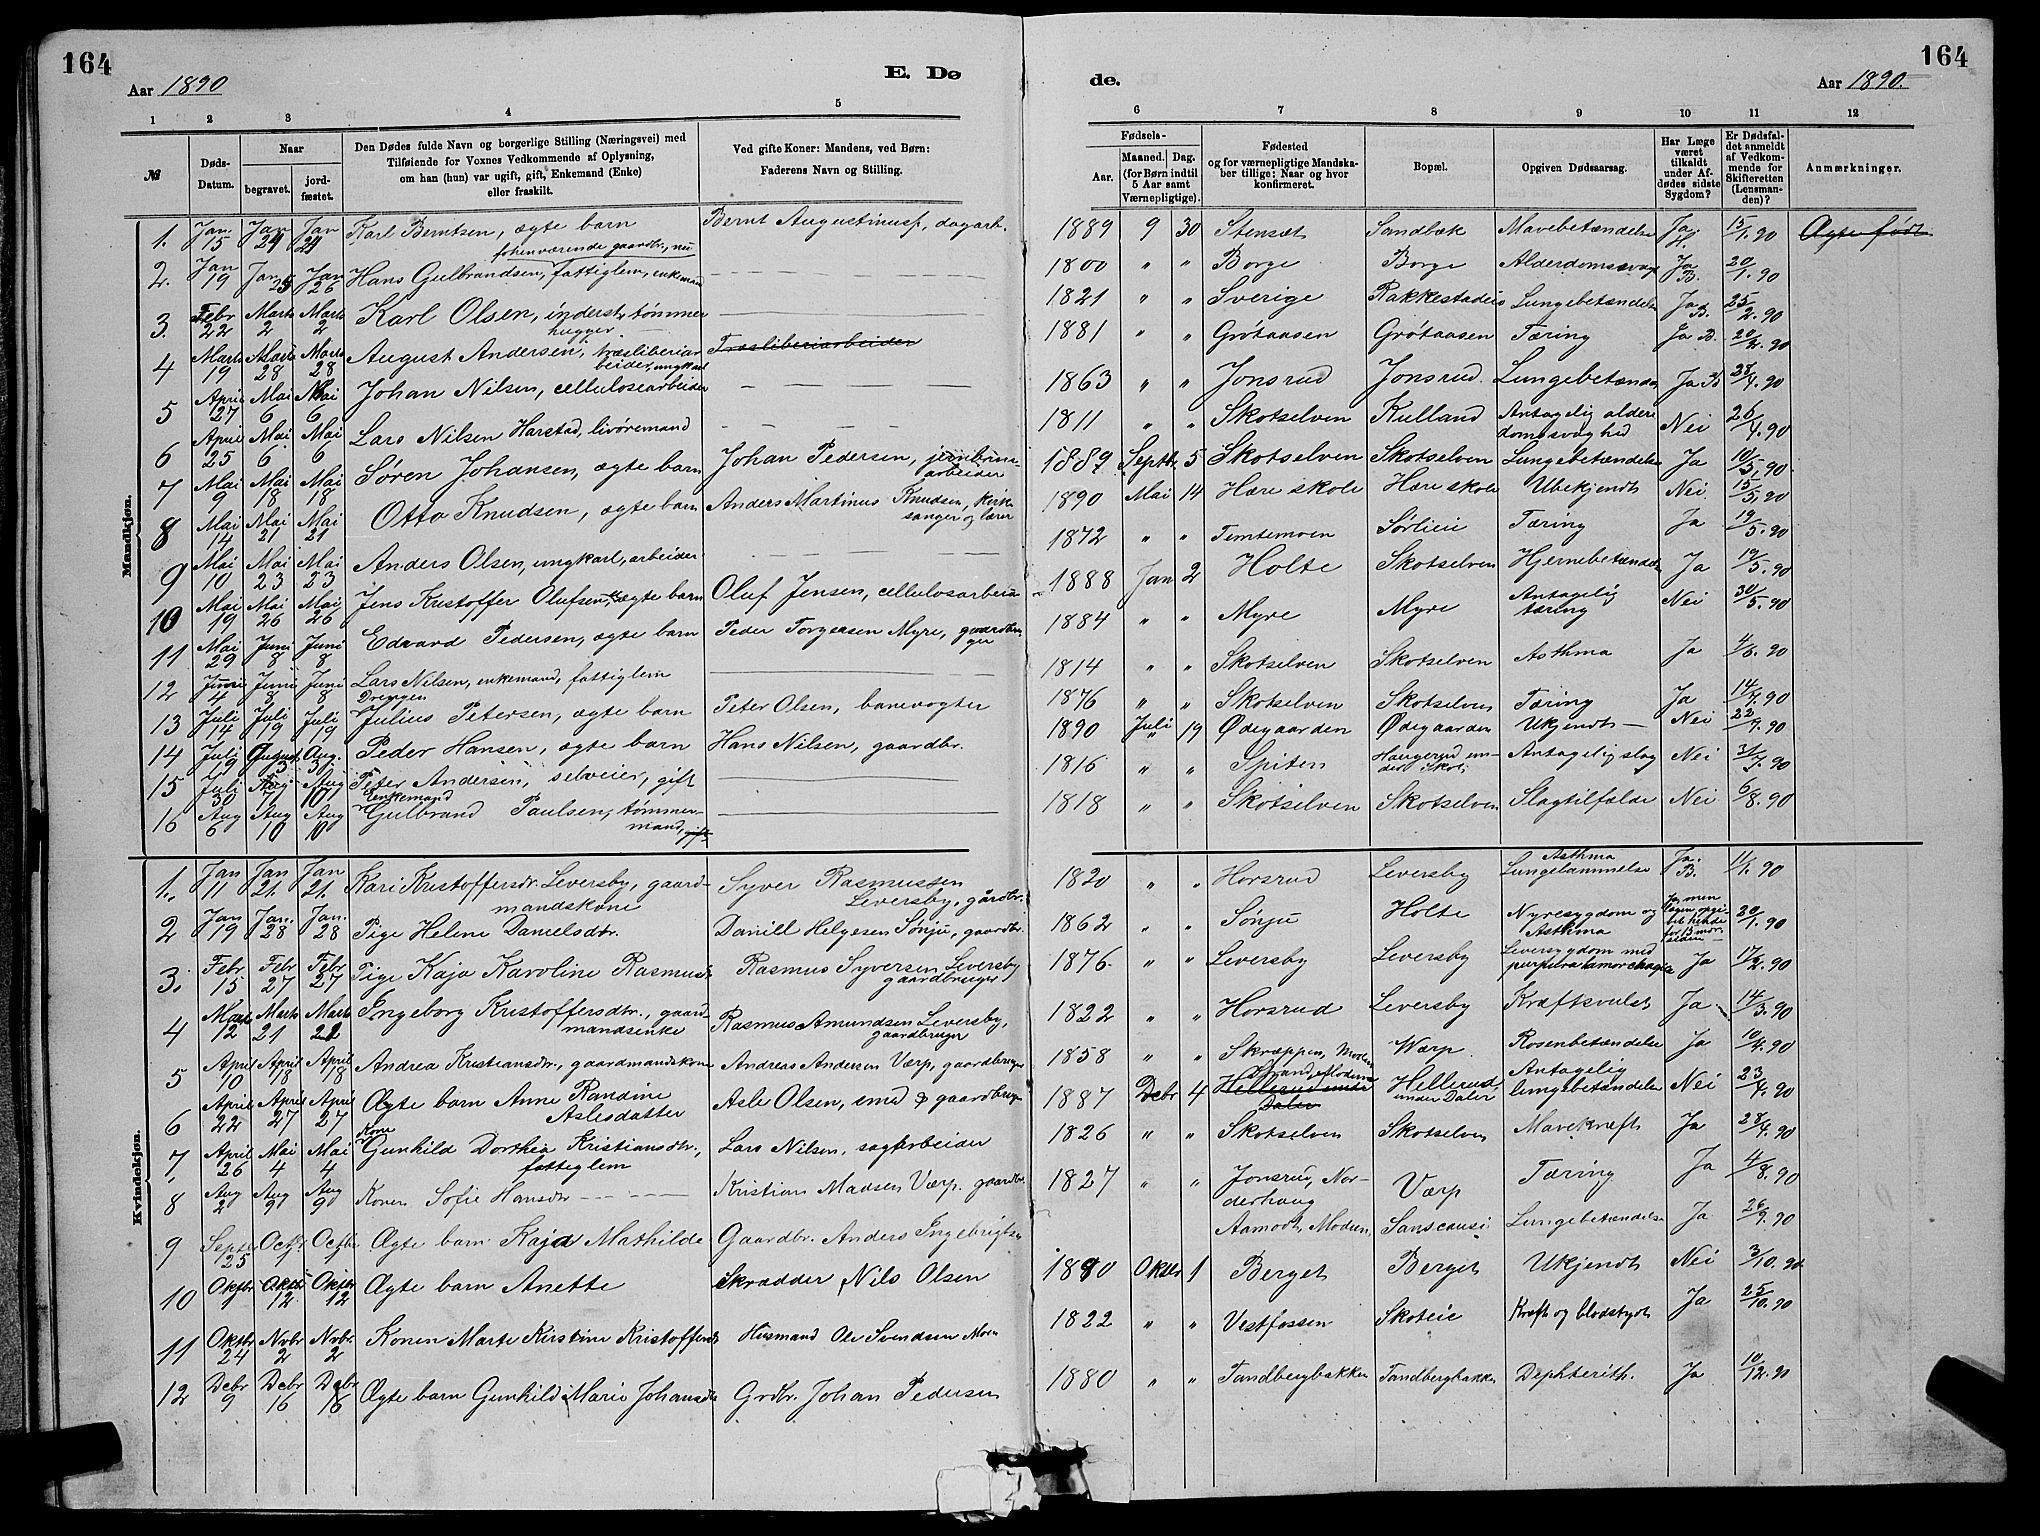 164
Aar 1890
E. Dø
1 2 3 4 5
№
Døds-Datum.
Naar
begravet.
jord-fæstet.
Den Dødes fulde Navn og borgerlige Stilling (Næringsvei) med
Tilføiende for Voxnes Vedkommende af Oplysning,
om han (hun) var ugift, gift, Enkemand (Enke)
eller fraskilt.
Ved gifte Koner: Mandens, ved Børn:
Faderens Navn og Stilling.
Mandkjøn.
1. Jan. 15 Jan 24 Jan 24 Karl Berntsen, ægte barn Bernt Augustinusf, dagarb.
forhenværende gaardbr., nu
2. Jan 19 Jan 25 Jan 26 Hans Gulbrandsen, fattiglem, enkemand
3. Febr 22 Marts 2 Marts 2 Karl Olsen, inderst, tømmer
hugger
4 Marts 19 Marts 28 Marts 28 August Andersen, træsliberiar Træsliberiarbeider
beider, ungkarl
5 April 27 Mai 6 Mai 6 Johan Nilsen, cellulosearbeider
6 April 25 Mai 6 Mai 6 Lars Nilsen Harstad, livøremand
7 Mai 9 Mai 18 Mai 18 Søren Johansen, ægte barn Johan Pedersen,
arbeider
8 Mai 14 Mai 21 Mai 21 Otto Knudsen, ægte barn Anders Martinus Knudsen, kirke
sanger og lærer
9 Mai 10 Mai 23 Mai 23 Anders Olsen, ungkarl, arbeider
10 Mai 19 Mai 26 Mai 26 Jens Kristoffer Olufsen, ægte barn Oluf Jensen, cellulosarbeider
11 Mai 29 Juni 8 Juni 8 Edvard Pedersen, ægte barn Peder Torgersen Myre, gaardbru
ger
12 Juni 4 Juni 8 Juni 8 Lars Nilsen, enkemand, fattiglem
Drengen
13 Juli 14 Juli 19 Juli 19 Julius Petersen, ægte barn Peter Olsen, banevogter
14 Juli 19 August 3 Aug. 3 Peder Hansen, ægte barn Hans Nilsen, gaardbr.
15 Juli 30 Aug 7 Aug 10 Peter Andersen, selveier, gift
Enkemand
16 Aug 6 Aug 10 Aug 10 Gulbrand Paulsen, tømmer-
mand, gift
Kvindekjøn.
1. Jan 11 Jan 21. Jan 21. Kari Kristoffersdr. Leversby, gaard- Syver Rasmussen
mandskone Leversby, gårdbr.
2 Jan 19 Jan. 28 Jan. 28 Pige Helene Danielsdtr. Daniel Helgesen Sønju, gaardbr.
3. Febr 15 Febr 27 Febr 27 Pige Kaja Karoline Rasmusd Rasmus Syversen Leversby
gaardbruger
4 Marts 12 Marts 21 Marts 21 Ingeborg Kristoffersdtr., gaard- Rasmus Amundsen Leversby,
mandsenke gaardbruger
5 April 10 April 18 April 18 Andrea Kristiansdr., gaardmandskone Andreas Andersen Værp, gaardbruger
6 April 22 April 27 April 27 Ægte barn Anne Randine Asle Olsen, smed & gaardbruger
Aslesdatter
Kone
7, April 26 Mai 4 Mai 4 Gunhild Dorthea Kristiansdtr., Lars Nilsen, sagarbeider
fattiglem
8 Aug 2 Aug 9 Aug 9 Konen Sofie Hansdr Kristian Madsen Værp. gaardbr
9 Septr 25 Octbr Octbr Ægte barn Kaja Mathilde Gaardbr. Anders Ingebrigtsen
10 Oktbr 9 Oktbr 12 Oktbr 12 Ægte barn Anette Skrædder Nils Olsen
11 Oktbr 24 Nvbr 2 Nvbr 2 Konen Marte Kirstine Kristoffersdr Husmand Ole Svendsen Moen
12 Debr 9 Debr 16 Debr 16 Ægte barn Gunhild Marie Johansdr Grdbr. Johan Pedersen
164
de.
Aar 1890.
6 7 8 9 10 11 12
Fødsels-
Aar.
Maaned. Dag.
(for Børn indtil
5 Aar samt
Værnepligtige).
Fødested
og for værnepligtige Mandska-
ber tillige: Naar og hvor
konfirmeret.
Bopæl.
Opgiven Dødsaarsag.
Har Læge
været
tilkaldt
under Af-
dødes sidste
Sygdom?
Er Dødsfal-
det anmeldt
af Vedkom-
mende for
Skifteretten
(Lensman-
den)?
Anmærkninger.
1889 9 30 Stensæt Sandbæk Mavebetændelse Ja H. 15/1. 90 Ægte født
1800 " " Borge Borge Alderdomssvagh Ja B. 20/1. 90
1821 " " Sverige Rakkestadeie Lungebetændelse Ja B. 25/2. 90
1881 " " Grøtaasen Grøtaasen Tæring Ja B. 90
1863 " " Jonsrud Jonsrud Lungebetændel Ja B 28/4. 90
1811 " " Skotselven Kulland Antagelig alder Nei 26/4. 90
domssvaghed
1889 Septbr 5 Skotselven Skotselven Lungebetændelse Ja 10/5. 90
1890 Mai 14 Hære skole Hære skole Ubekjendt Nei 15/5. 90
1872 " " Temtemoen Sørlieie Tæring Ja 19/5. 90
1888 Jan 2 Holte Skotselven Hjernebetændelse Ja 19/5. 90
1884 " " Myre Myre Antagelig Nei 30/5. 90
tæring
1814 " " Skotselven Skotselven Asthma Ja 4/6. 90
1876 " " Skotselven Skotselven Tæring Ja 14/7. 90
1890 Juli 19 Ødegaarden Ødegaarden Ukjendt Nei 22/7. 90
1816 " " Spiten Haugerud un- Antagelig slag Nei 31/7. 90
der Skot.
1818 " " Skotselven Skotselven Slagtilfælde Nei 6/8. 90
1820 " " Horsrud Leversby Asthma Ja. B. 11/1. 90
Lungelammelse
1862 " " Sønju Holte Nyresygdom og Ja, men 20/1. 90
Asthma
1876 " " Leversby Leversby Leversygdom med Ja 17/2. 90
purpura hæmorrhagica
1822 " " Horsrud Leversby Kræftsvulst Ja 14/3. 90
1858 " " Skræppen, Modum Værp. Rosenbetændelse Ja 10/4. 90
Strand,
1887 Debr 4 Hellerud under Hellerud, Antagelig Nei 23/4. 90
Daler under Daler lungebetændelse
1826 " " Skotselven Skotselven Mavekræft Ja 28/4. 90
1827 " " Jonsrud, Nor- Værp Tæring Ja 4/8. 90
derhaug
Aamodt, Modum Sanscausi Lungebetændelse Ja 26/9. 90
1890 Oktbr 1 Berget Berget Ukjendt Nei 3/10. 90
1822 " " Vestfossen Skoteie Kræft og blodstyrt Ja 25/10. 90
1880 " " Tandbergbakken Tandbergbakke Dephterith. Ja 10/12. 90